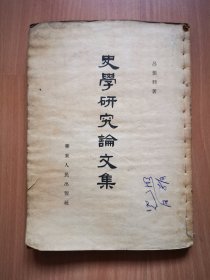 呂振羽著
史學研究論文集
華東人民出版社